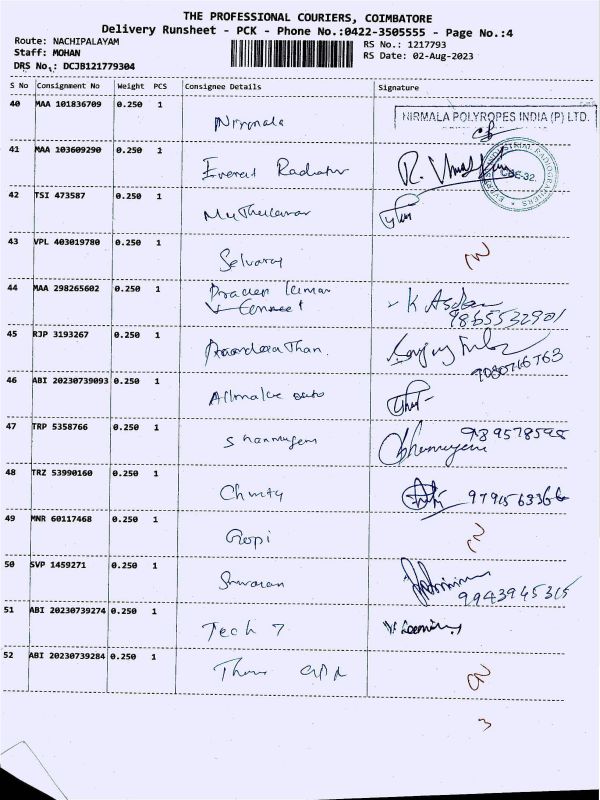 THE PROFESSIONAL COURIERS, COIMBATORE
Delivery Runsheet - PCK - Phone No.:0422-3505555 - Page No.:4
Route: NACHIPALAYAM
RS No.: 1217793
Staff: MOHAN
RS Date: 02-Aug-2023
DRS No.: DCJB121779304
S No Consignment No Weight PCS Consignee Details Signature
40 MAA 101836709 0.250 1 Nirmala NIRMALA POLYROPES INDIA (P) LTD.
41 MAA 103609290 0.250 1 Everest Radiator
42 TSI 473587 0.250 1
43 VPL 403019780 0.250 1 Selvaraj
44 MAA 298265602 0.250 1 Pradeep Kumar
9865532901
45 RJP 3193267 0.250 1
9080716763
46 ABI 20230739093 0.250 1
47 TRP 5358766 0.250 1 Shanmugam 989578598
48 TRZ 53990160 0.250 1 9791563366
49 MNR 60117468 0.250 1 Gopi
50 SVP 1459271 0.250 1 9943945315
51 ABI 20230739274 0.250 1 Tech 7
52 ABI 20230739284 0.250 1
3